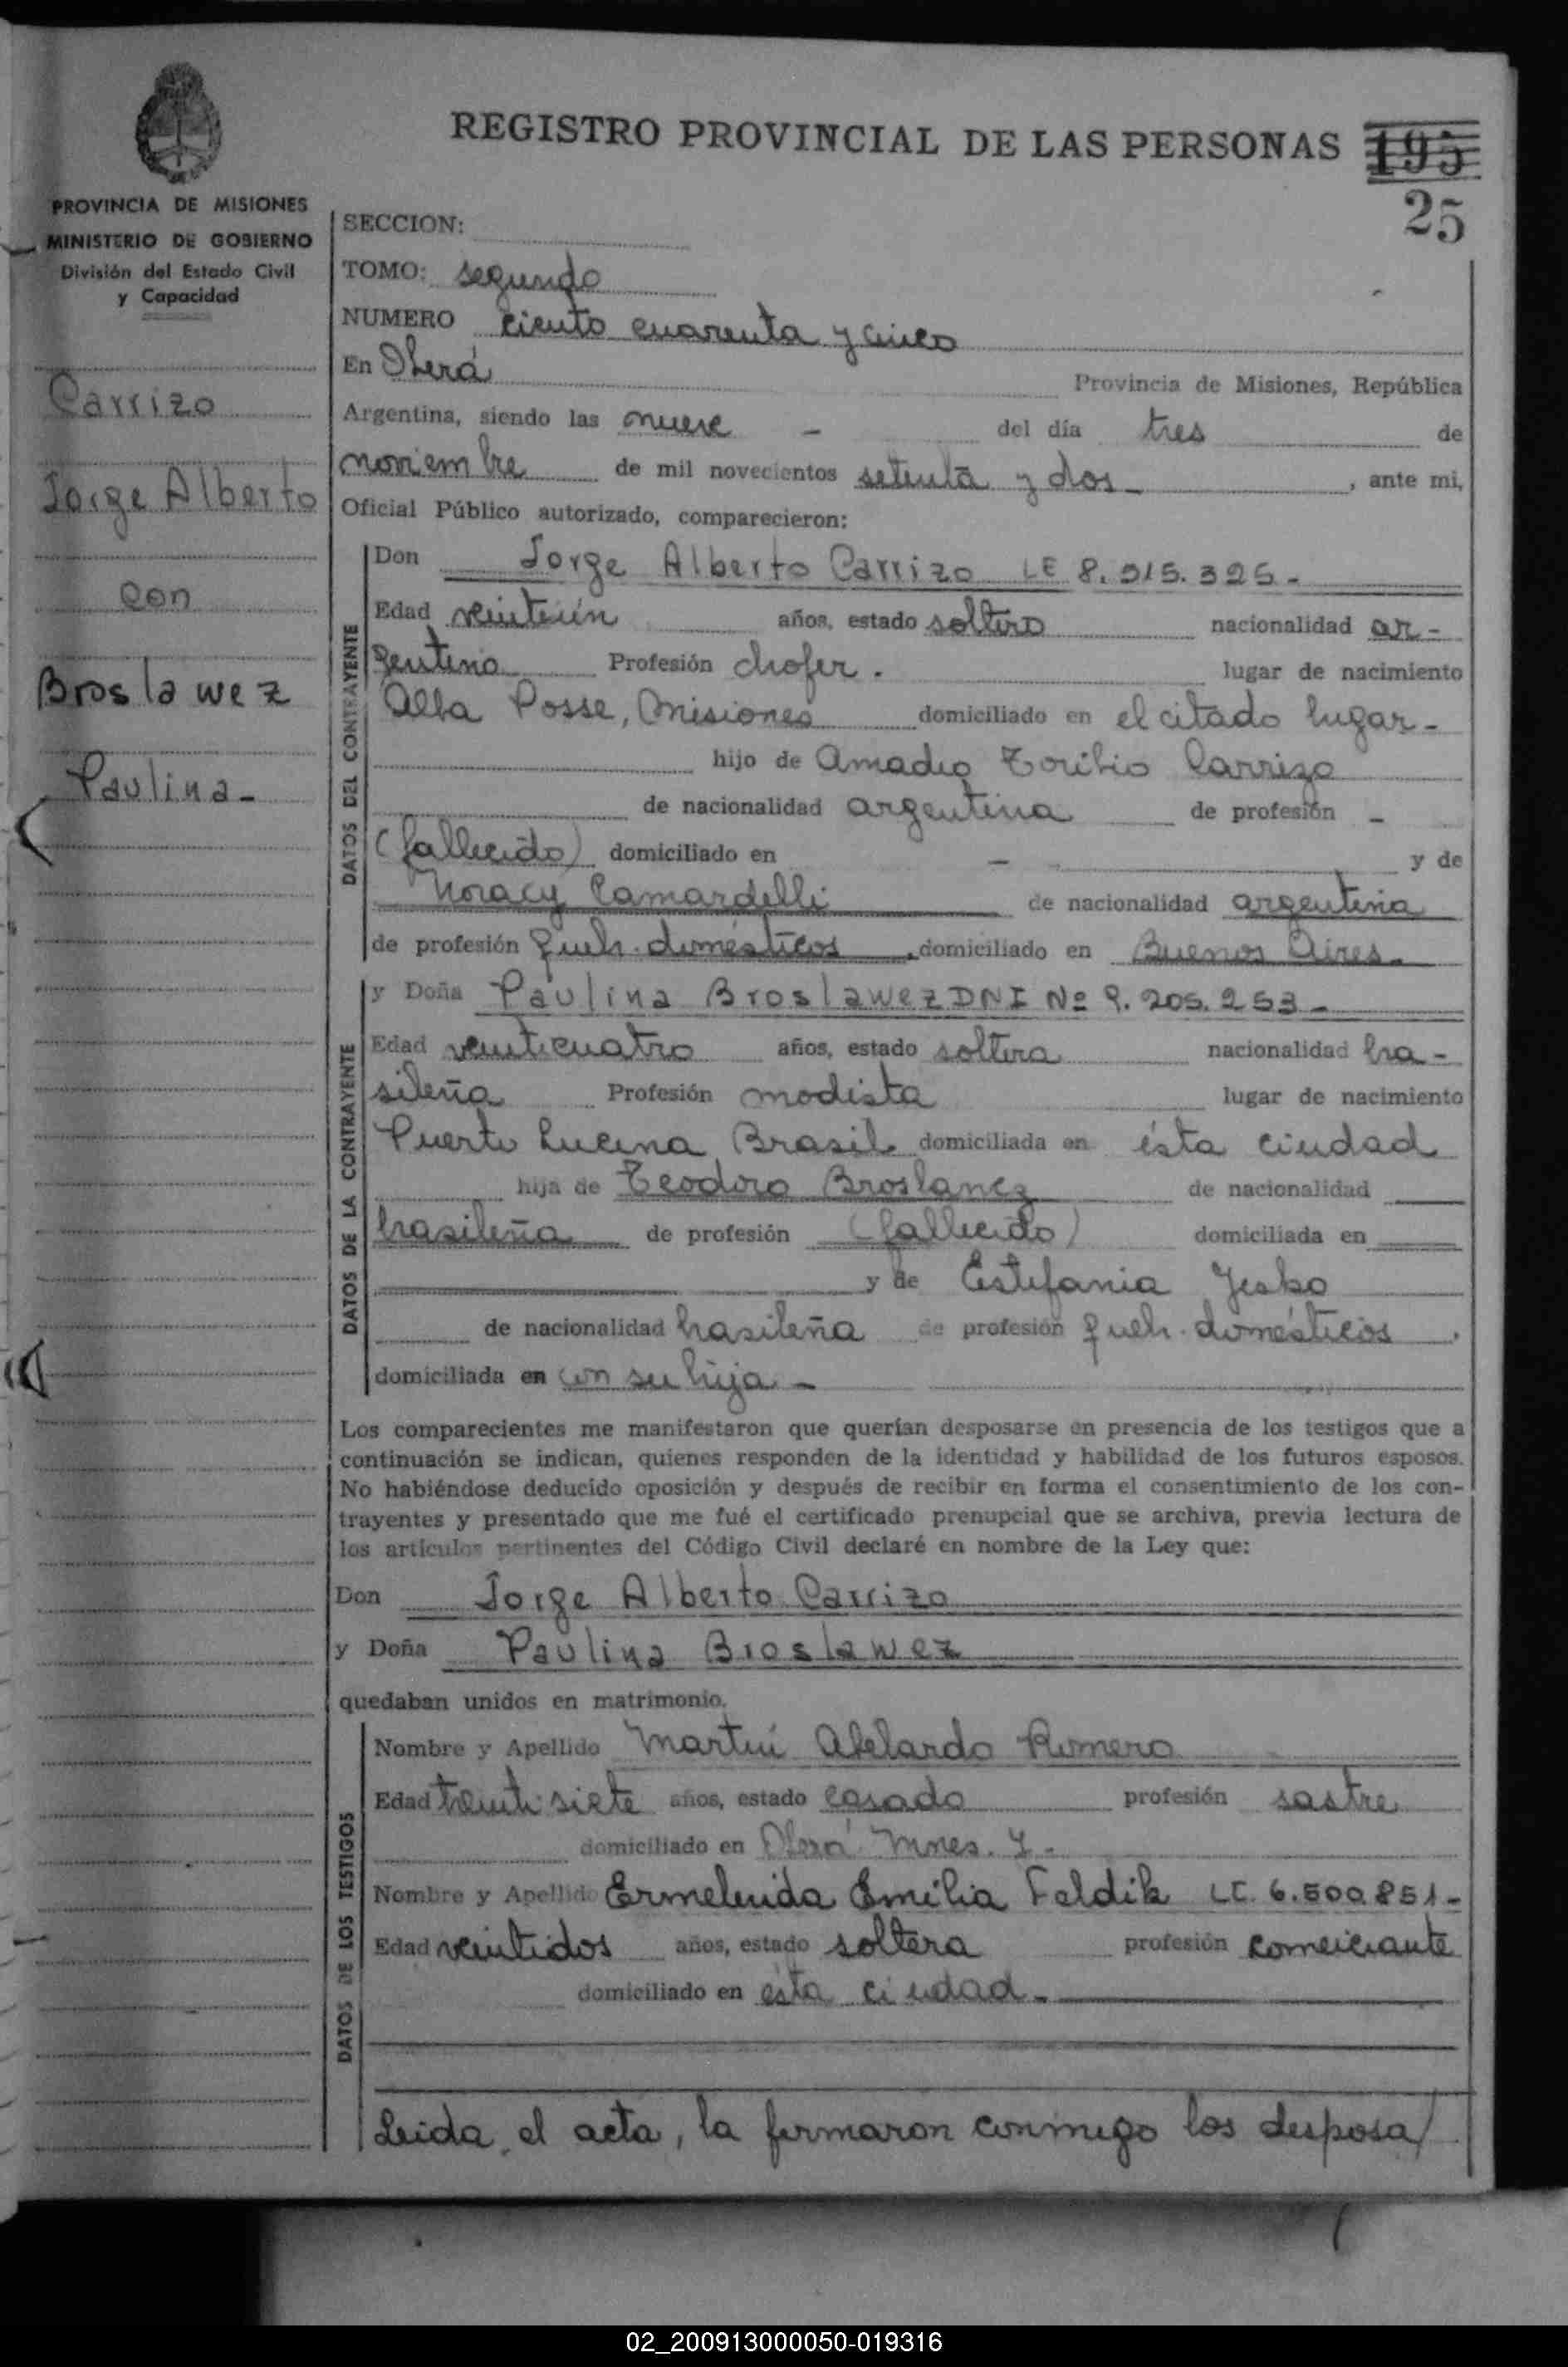 REGISTRO PROVINCIAL DE LAS PERSONAS 195
25
PROVINCIA DE MISIONES
MINISTERIO DE GOBIERNO
División del Estado Civil
y Capacidad
Carrizo
Jorge Alberto
con
Broslawez
Paulina-
SECCION:
TOMO: segundo
NUMERO ciento cuarenta y cinco
En Oberá Provincia de Misiones, República
Argentina, siendo las nueve - del día tres de
noviembre de mil novecientos setenta y dos - , ante mi,
Oficial Público autorizado, comparecieron:
DATOS DEL CONTRAYENTE
Don Jorge Alberto Carrizo LE 8.515.325.-
Edad veintiún años, estado soltero nacionalidad ar-
gentina Profesión chofer. lugar de nacimiento
Alba Posse, Misiones domiciliado en el citado lugar-
hijo de Amadeo Toribio Carrizo
de nacionalidad argentina de profesión -
(fallecido) domiciliado en - y de
Noracy Camardelli de nacionalidad argentina
de profesión queh. domésticos , domiciliado en Buenos Aires.
DATOS DE LA CONTRAYENTE
y Doña Paulina Broslawez DNI Nº 9.205.253-
Edad veinticuatro años, estado soltera nacionalidad bra-
sileña Profesión modista lugar de nacimiento
Puerto Lucena, Brasil domiciliada en ésta ciudad
hija de Teodoro Broslanez de nacionalidad
brasileña de profesión (fallecido) domiciliada en
y de Estefania Jesko
de nacionalidad brasileña de profesión queh. domésticos ,
domiciliada en con su hija -
Los comparecientes me manifestaron que querían desposarse en presencia de los testigos que a
continuación se indican, quienes responden de la identidad y habilidad de los futuros esposos.
No habiéndose deducido oposición y después de recibir en forma el consentimiento de los con-
trayentes y presentado que me fué el certificado prenupcial que se archiva, previa lectura de
los artículos pertinentes del Código Civil declaré en nombre de la Ley que:
Don Jorge Alberto Carrizo
y Doña Paulina Broslawez
quedaban unidos en matrimonio.
DATOS DE LOS TESTIGOS
Nombre y Apellido Martín Abelardo Romero
Edad treinti siete años, estado casado profesión sastre
domiciliado en Oberá Mnes.
Nombre y Apellido Ermelinda Emilia Feldik LC. 6.500.851-
Edad veintidos años, estado soltera profesión comerciante
domiciliado en ésta ciudad.-
Leida el acta, la firmaron conmigo los desposa/
02_200913000050-019316